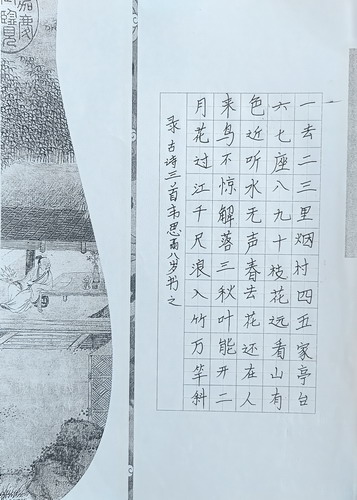 一去二三里烟村四五家亭台
六七座八九十枝花远看山有
色近听水无声春去花还在人
来鸟不惊解落三秋叶能开二
月花过江千尺浪入竹万竿斜
录古诗三首韦思雨八岁书之